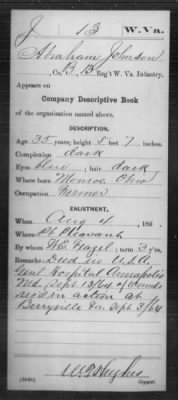 J 13 W. Va.
Abraham Johnson
Co. B, 13 Reg't W. Va. Infantry.
Appears on
Company Descriptive Book
of the organization named above.
DESCRIPTION.
Age 35 years; height 5 feet 7 inches.
Complexion dark
Eyes blue; hair dark
Where born Monroe, Ohio
Occupation Farmer
ENLISTMENT.
When Aug 4, 186 .
Where Pt. Pleasant
By whom Hazel; term 3 y'rs.
Remarks: Died in U.S.A.
Genl Hospital Annapolis
Md. Sept 13/64 of wounds
rec'd in action at
Berryville Va. Sept 3/64
Hughes
Copyist.